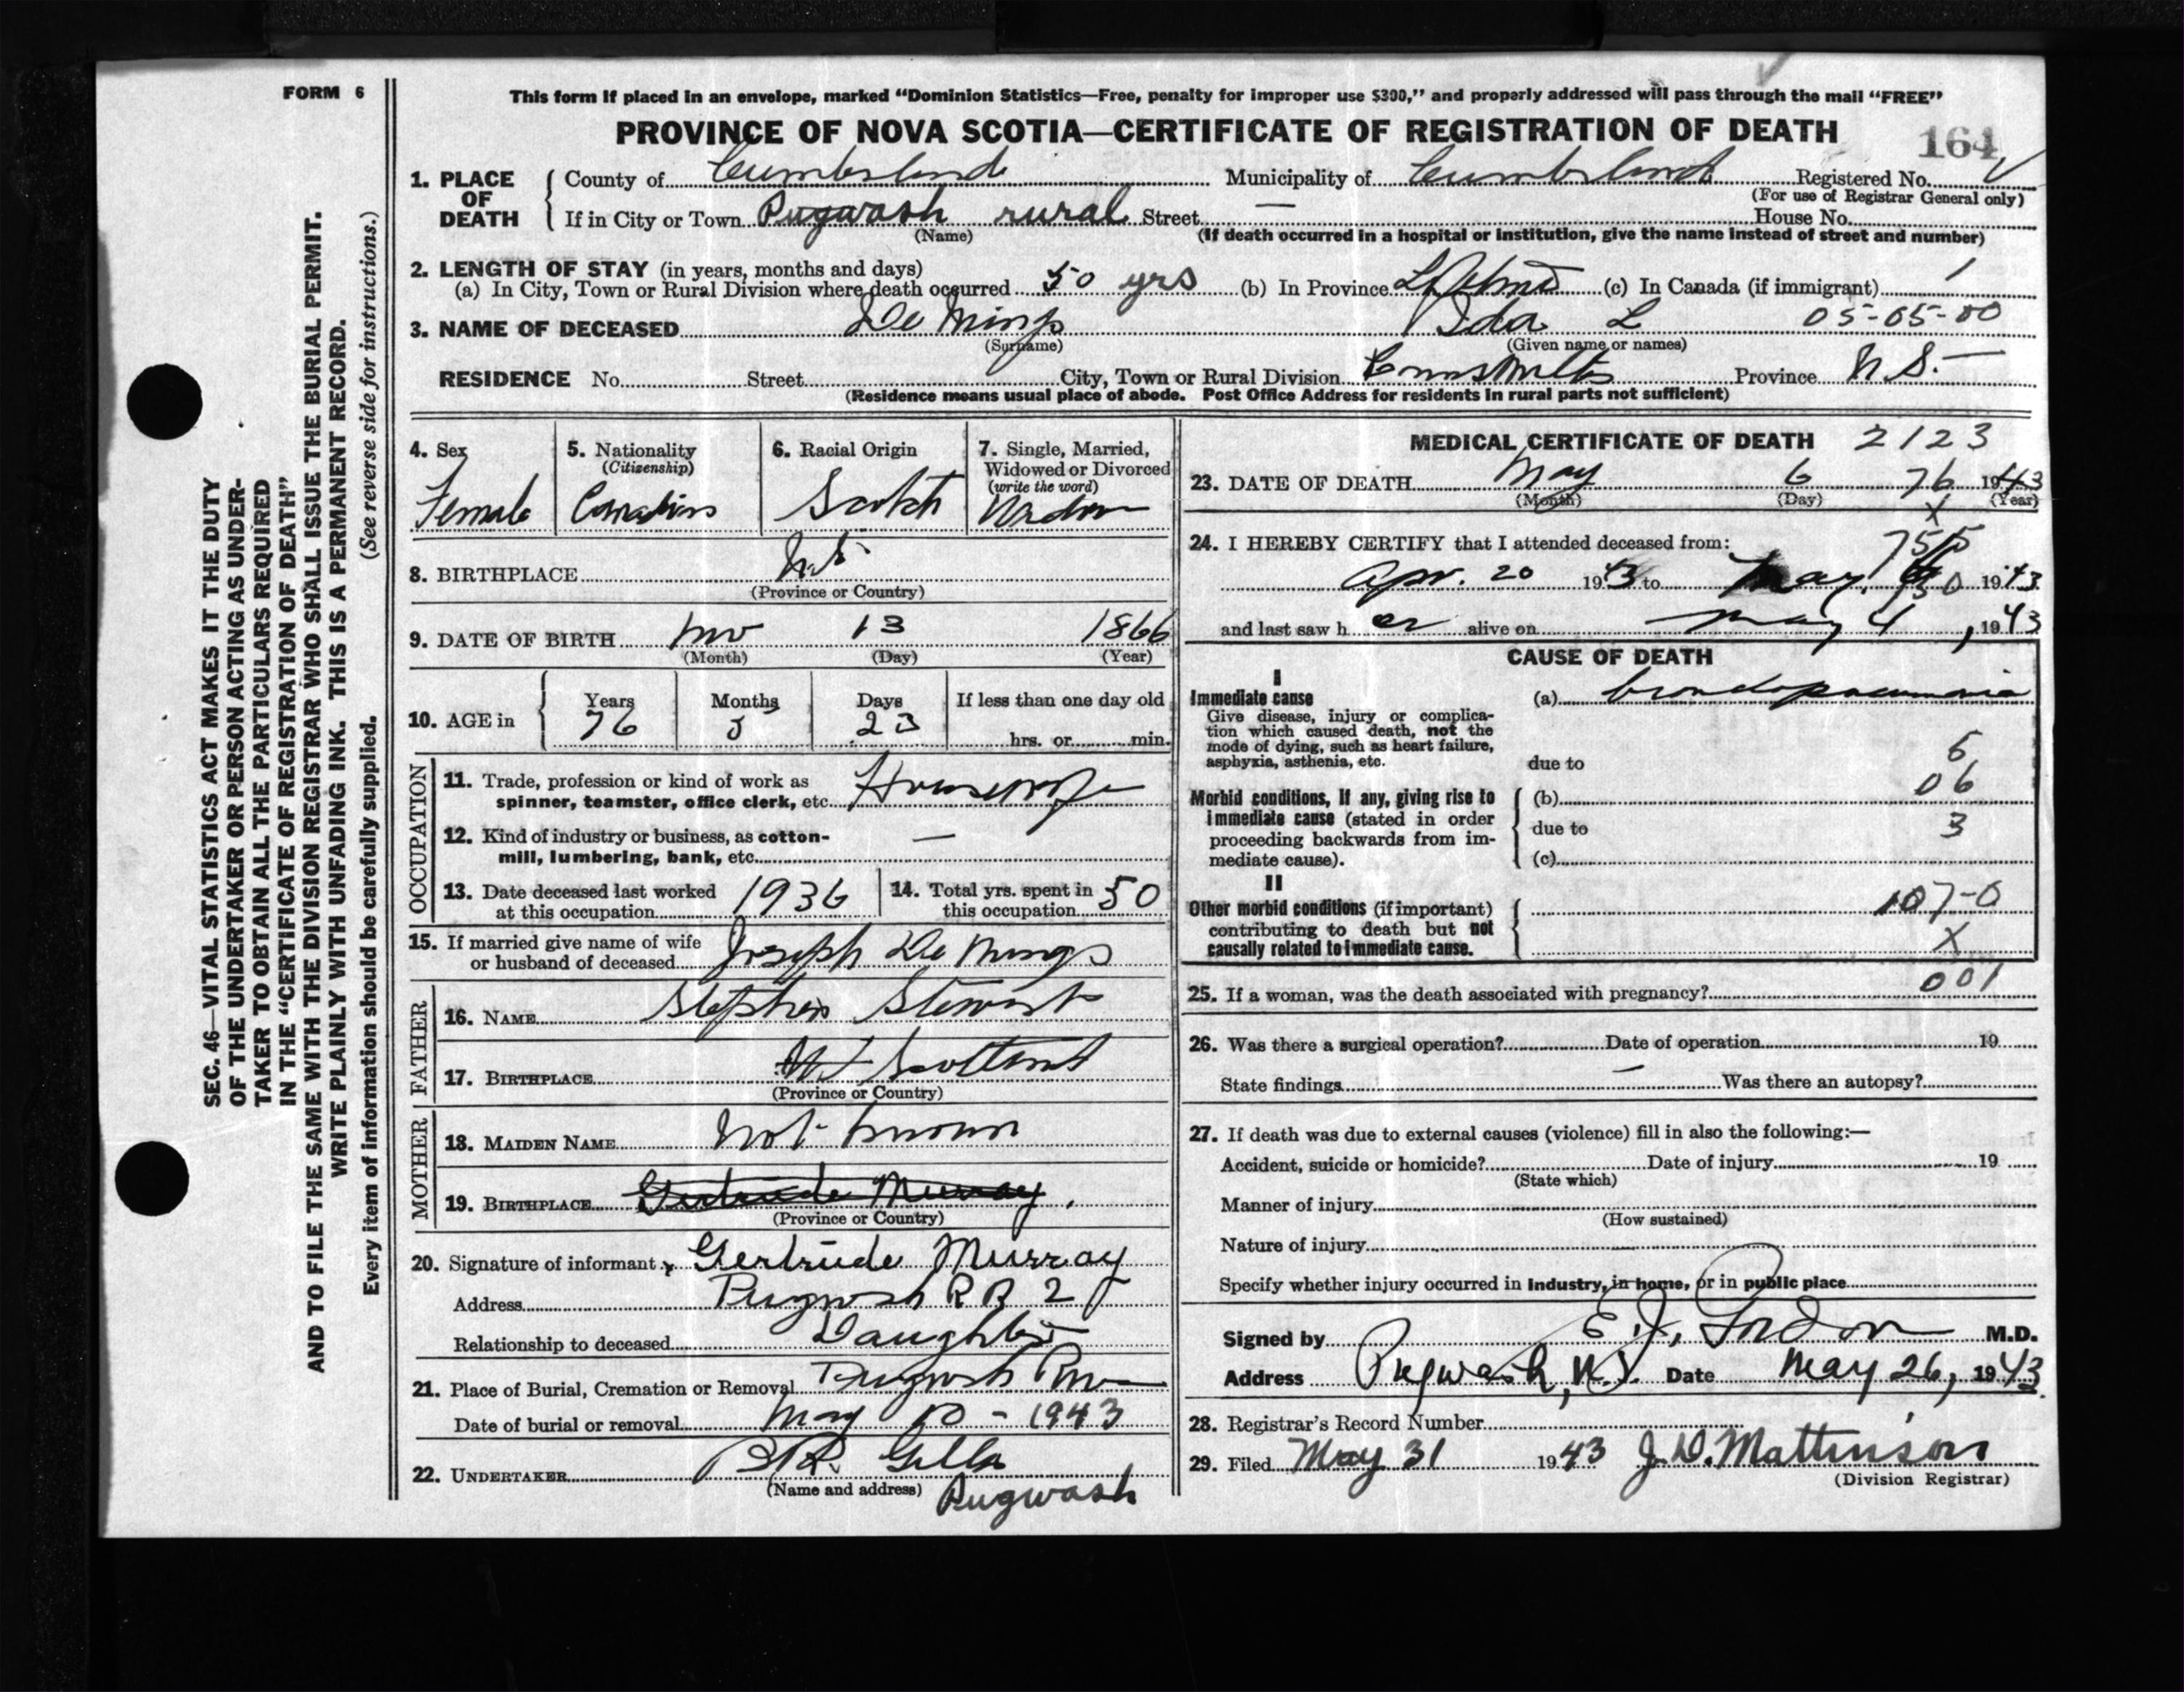 FORM 6
This form if placed in an envelope, marked “Dominion Statistics—Free, penalty for improper use $300,” and properly addressed will pass through the mail “FREE”
PROVINCE OF NOVA SCOTIA—CERTIFICATE OF REGISTRATION OF DEATH
164
1. PLACE OF DEATH
County of Cumberland Municipality of Cumberland Registered No.
(For use of Registrar General only)
If in City or Town Pugwash rural Street — House No.
(Name) (If death occurred in a hospital or institution, give the name instead of street and number)
2. LENGTH OF STAY (in years, months and days)
(a) In City, Town or Rural Division where death occurred 50 yrs (b) In Province (c) In Canada (if immigrant) 1
3. NAME OF DECEASED De Mings Ida L 05-05-00
(Surname) (Given name or names)
RESIDENCE No. Street City, Town or Rural Division Province N.S.—
(Residence means usual place of abode. Post Office Address for residents in rural parts not sufficient)
4. Sex
Female
5. Nationality
(Citizenship)
Canadian
6. Racial Origin
Scotch
7. Single, Married, Widowed or Divorced
(write the word)
Widow
8. BIRTHPLACE N.S.
(Province or Country)
9. DATE OF BIRTH Nov 13 1866
(Month) (Day) (Year)
10. AGE in
Years Months Days If less than one day old
76 5 23 hrs. or min.
OCCUPATION
11. Trade, profession or kind of work as
spinner, teamster, office clerk, etc. Housewife
12. Kind of industry or business, as cotton-
mill, lumbering, bank, etc. —
13. Date deceased last worked
at this occupation 1936
14. Total yrs. spent in
this occupation 50
15. If married give name of wife
or husband of deceased Joseph De Mings
FATHER
16. NAME Stephen Stewart
17. BIRTHPLACE Scotland
(Province or Country)
MOTHER
18. MAIDEN NAME Not known
19. BIRTHPLACE Gertrude Murray
(Province or Country)
20. Signature of informant x Gertrude Murray
Address Pugwash R R 2
Relationship to deceased Daughter
21. Place of Burial, Cremation or Removal Pugwash
Date of burial or removal May 10 - 1943
22. UNDERTAKER
(Name and address) Pugwash
MEDICAL CERTIFICATE OF DEATH 2123
23. DATE OF DEATH May 6 76 1943
(Month) (Day) (Year)
X
24. I HEREBY CERTIFY that I attended deceased from:
Apr. 20 1943 to May 1943
and last saw h er alive on May 4, 1943
CAUSE OF DEATH
I
Immediate cause
Give disease, injury or complica-
tion which caused death, not the
mode of dying, such as heart failure,
asphyxia, asthenia, etc.
(a) bronchopneumonia
due to
6
Morbid conditions, if any, giving rise to
immediate cause (stated in order
proceeding backwards from im-
mediate cause).
(b) 06
due to 3
(c)
II
Other morbid conditions (if important)
contributing to death but not
causally related to immediate cause.
107-0
X
25. If a woman, was the death associated with pregnancy? 001
26. Was there a surgical operation? Date of operation 19
State findings — Was there an autopsy?
27. If death was due to external causes (violence) fill in also the following:—
Accident, suicide or homicide? Date of injury 19
(State which)
Manner of injury
(How sustained)
Nature of injury
Specify whether injury occurred in industry, in home, or in public place
Signed by Gordon M.D.
Address Pugwash, N.S. Date May 26, 1943.
28. Registrar's Record Number
29. Filed May 31 1943 J.D. Mattinson
(Division Registrar)
SEC. 46—VITAL STATISTICS ACT MAKES IT THE DUTY
OF THE UNDERTAKER OR PERSON ACTING AS UNDER-
TAKER TO OBTAIN ALL THE PARTICULARS REQUIRED
IN THE “CERTIFICATE OF REGISTRATION OF DEATH”
AND TO FILE THE SAME WITH THE DIVISION REGISTRAR WHO SHALL ISSUE THE BURIAL PERMIT.
WRITE PLAINLY WITH UNFADING INK. THIS IS A PERMANENT RECORD.
Every item of information should be carefully supplied. (See reverse side for instructions.)